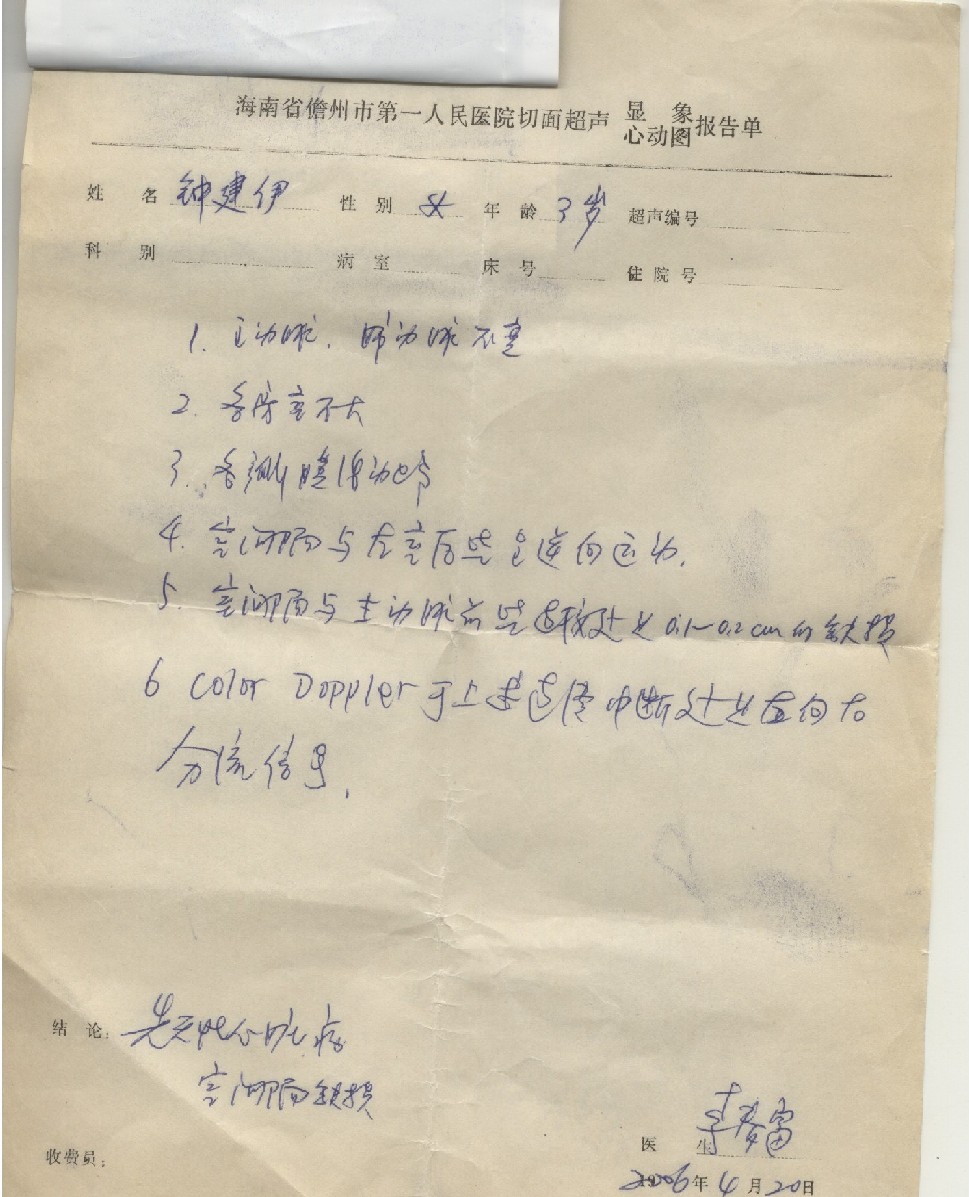 海南省儋州市第一人民医院切面超声 显象 心动图 报告单
姓名 钟建伊 性别 女 年龄 3岁 超声编号
科别 病室 床号 住院号
1. 主动脉、肺动脉不宽
2. 各房室不大
3. 各瓣膜活动正常
4. 室间隔与左室后壁呈逆向运动.
5. 室间隔与主动脉前壁连接处见0.1~0.2cm的缺损
6 Color Doppler于上述连续中断处见左向右
分流信号.
结论: 先天性心脏病
室间隔缺损
医生
收费员:
2006年4月20日